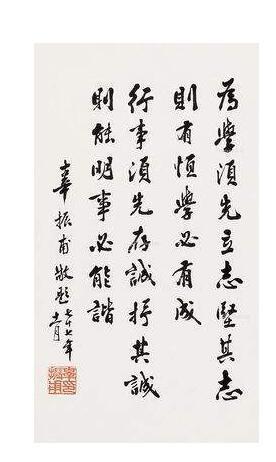 為學須先立志堅其志
則有恒學必有成
行事須先存誠抒其誠
則能明事必能諧
辜振甫敬題
七十七年